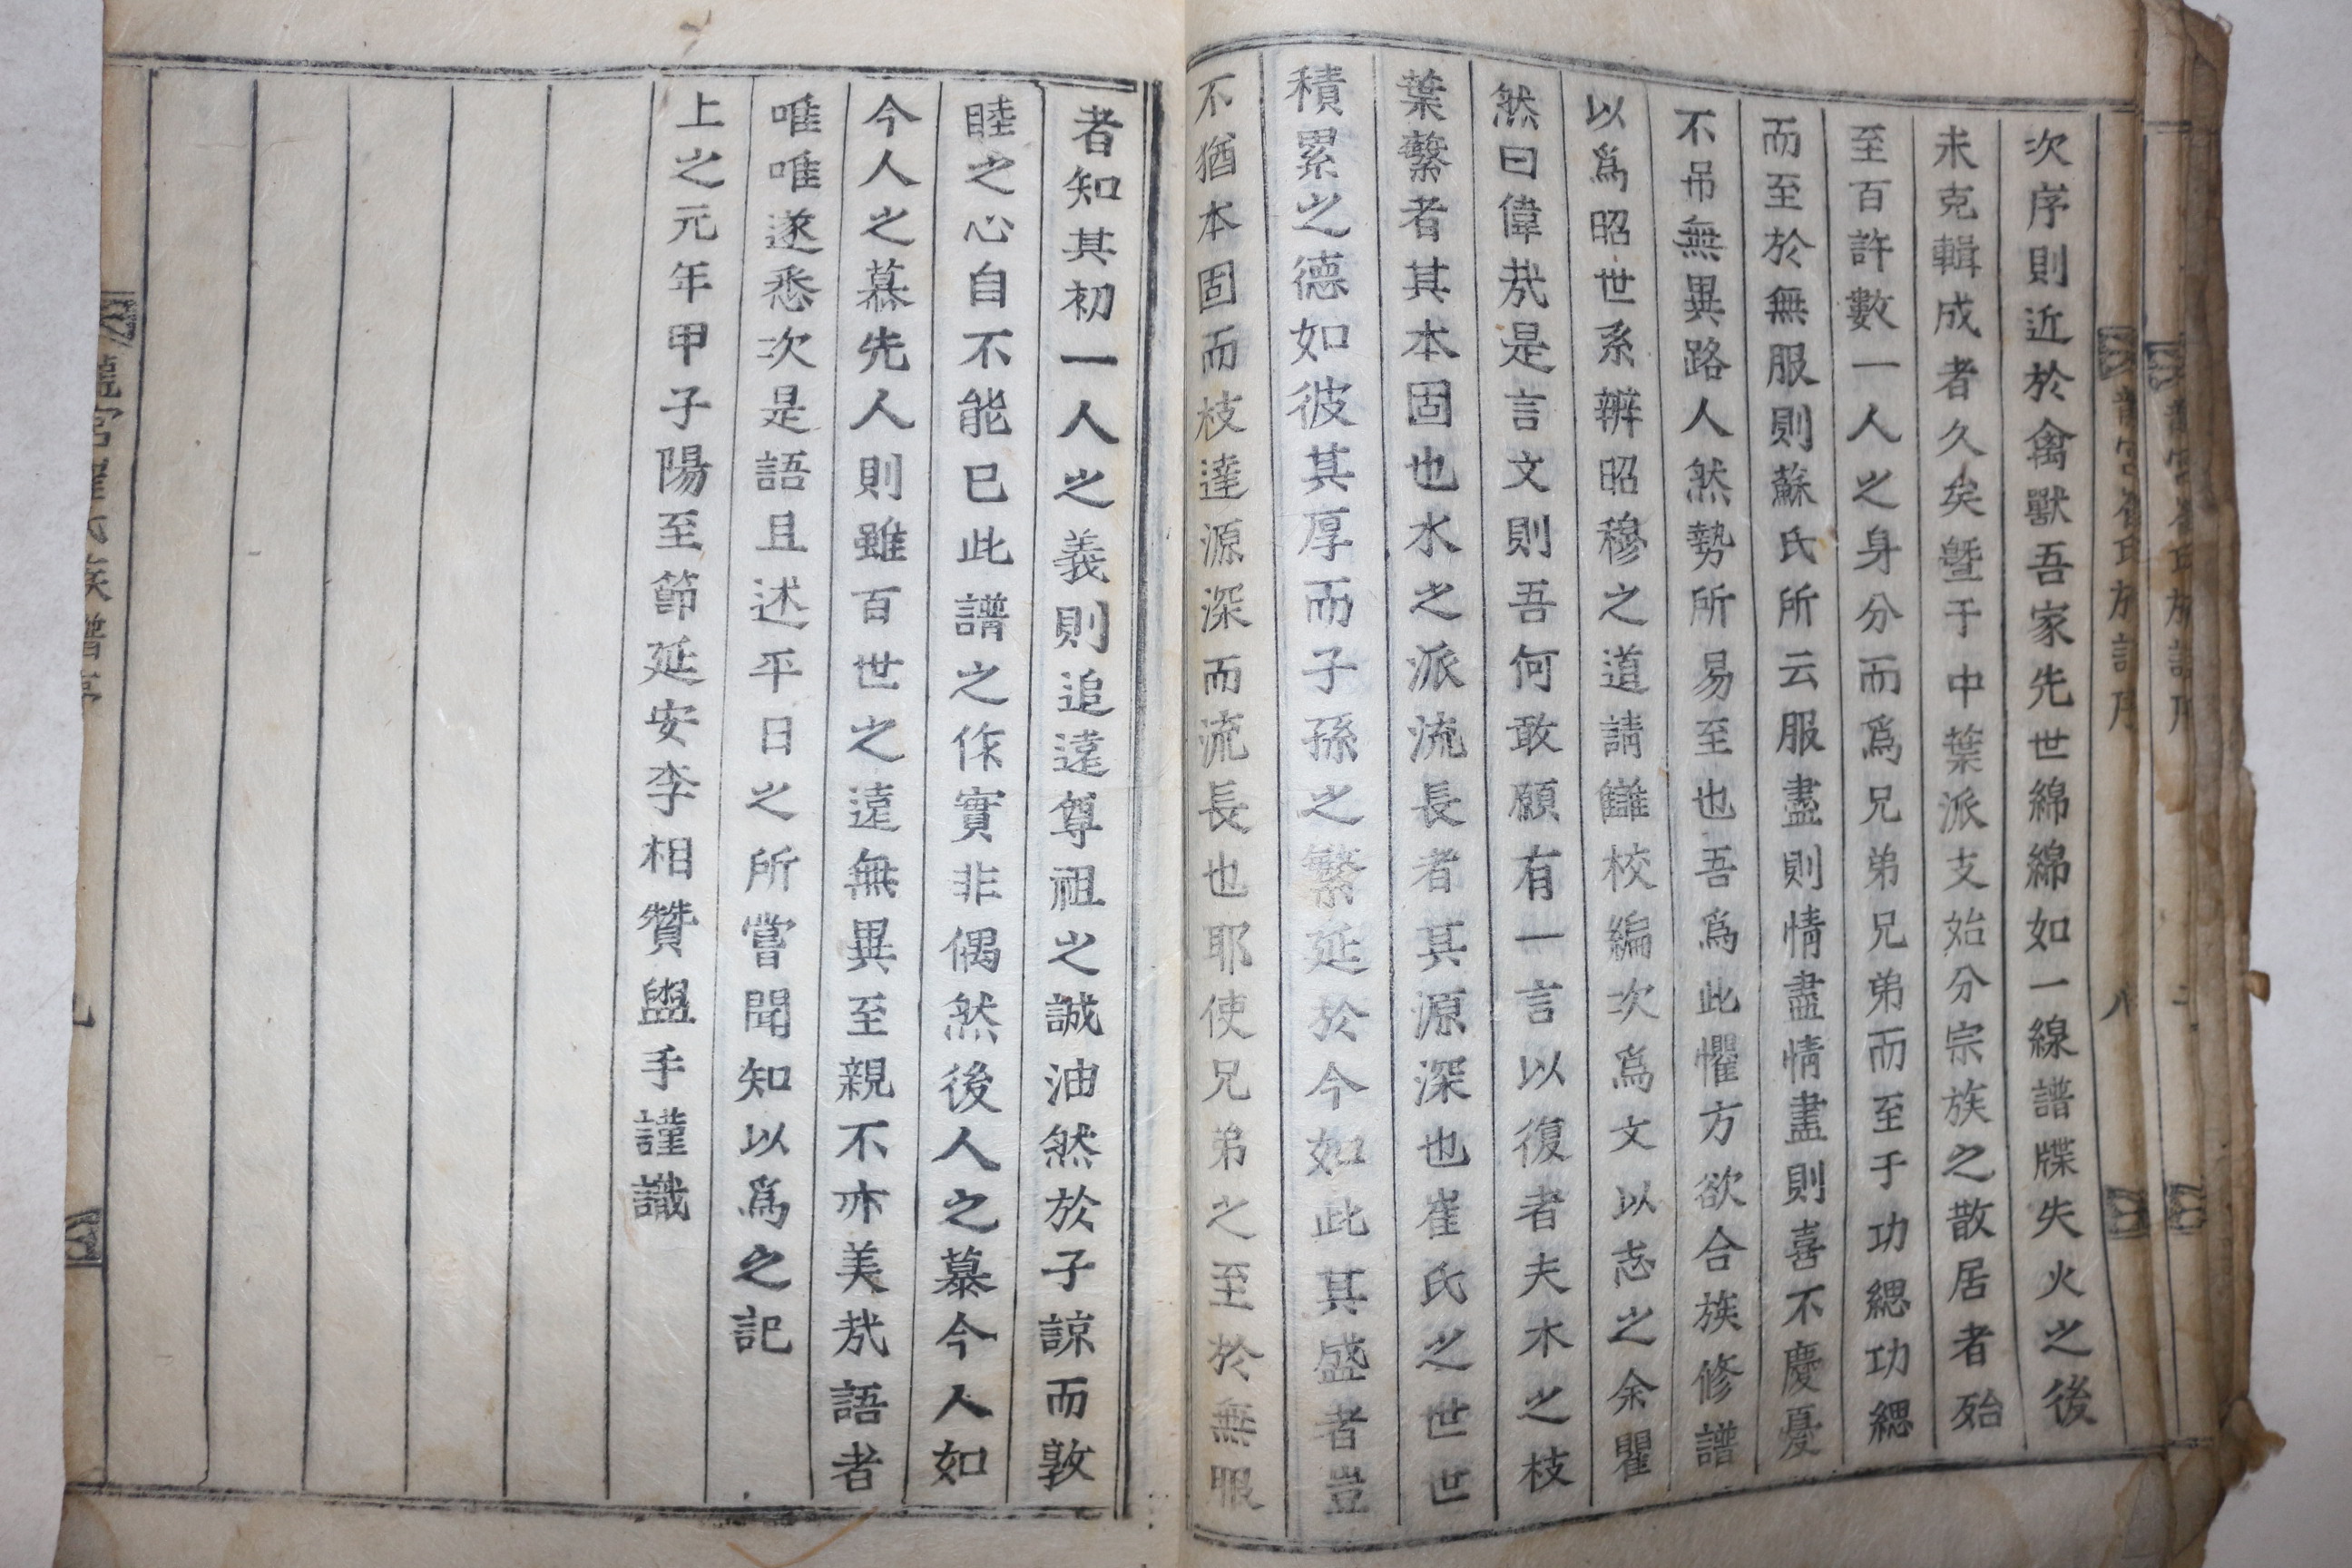 次序則近於禽獸吾家先世綿綿如一線譜牒失火之後
未克輯成者久矣曁于中葉派支始分宗族之散居者殆
至百許數一人之身分而爲兄弟兄弟而至于功緦功緦
而至於無服則蘇氏所云服盡則情盡情盡則喜不慶憂
不吊無異路人然勢所易至也吾爲此懼方欲合族修譜
以爲昭世系辨昭穆之道請讎校編次爲文以志之余瞿
然曰偉㢤是言文則吾何敢願有一言以復者夫木之枝
葉繫者其本固也水之派流長者其源深也崔氏之世世
積累之德如彼其厚而子孫之繁延於今如此其盛者豈
不猶本固而枝達源深而流長也耶使兄弟之至於無服
者知其初一人之義則追遠尊祖之誠油然於子諒而敦
睦之心自不能已此譜之作實非偶然後人之慕今人如
今人之慕先人則雖百世之遠無異至親不亦美㢤語者
唯唯遂悉次是語且述平日之所嘗聞知以爲之記
上之元年甲子陽至節延安李相贊盥手謹識
族譜